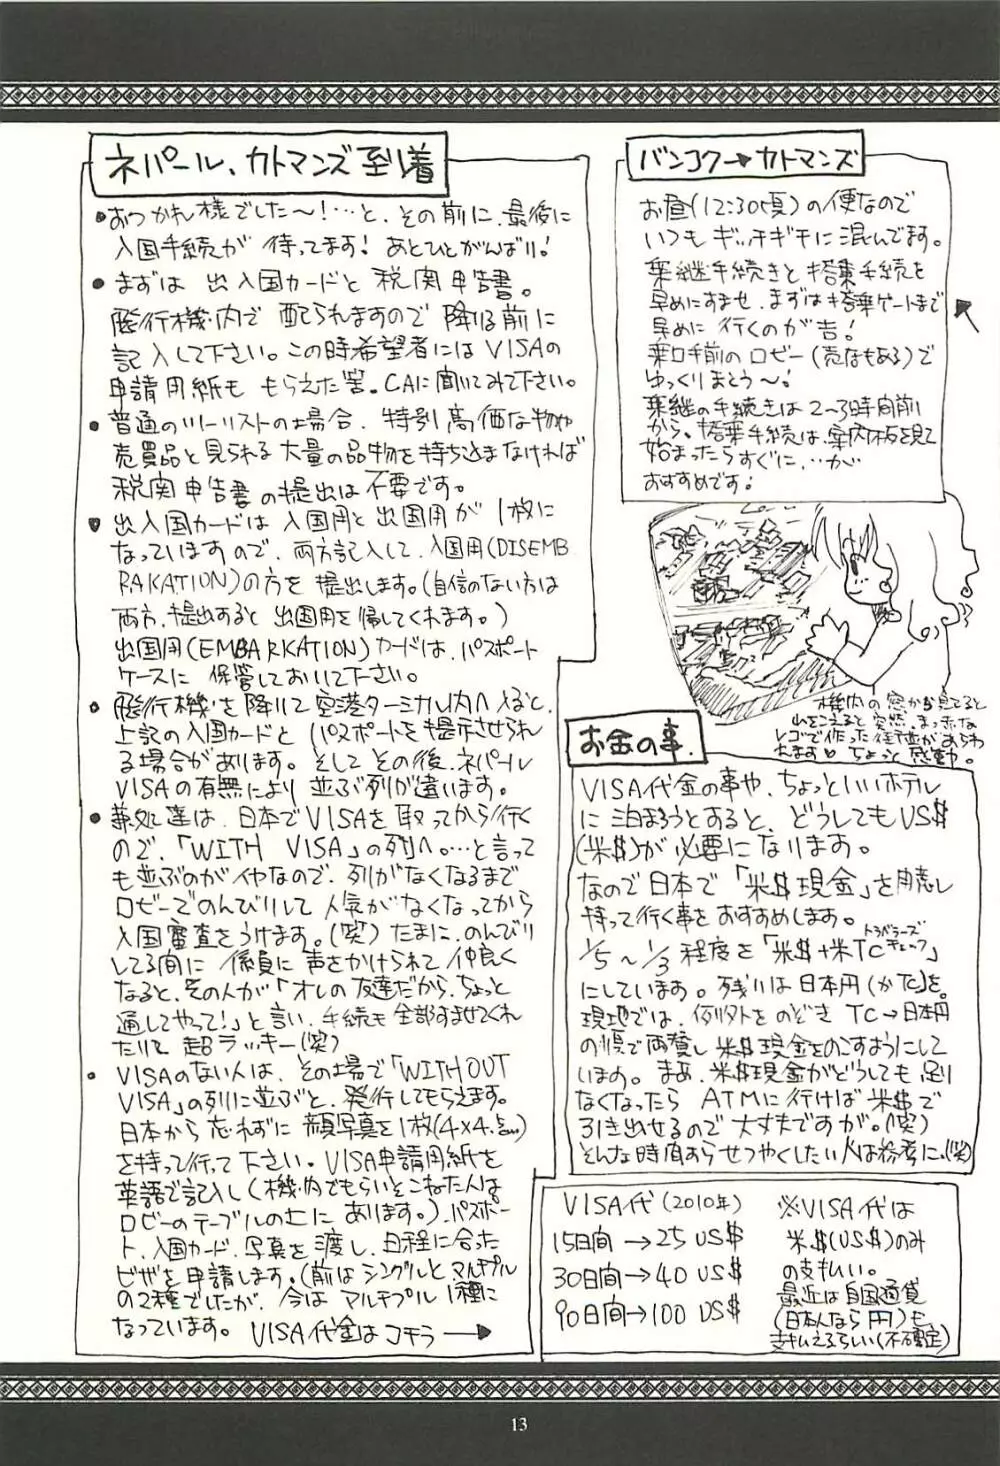 バンコク→カトマンズ
お昼(12:30頃)の便なので
いつもギッチギチに混んでます。
乗継手続きと搭乗手続を
早めにすませ、まずは搭乗ゲートまで
早めに行くのが吉!
乗口手前のロビー(売店もある)で
ゆっくりまとう〜!
乗継の手続きは2〜3時間前
から。搭乗手続は、案内板を見て
始まったらすぐに、…が
おすすめです!
機内の窓から見てると
山をこえると突然、まっ赤な
レゴで作った街並があらわ
れます♡ちょっと感動。
ネパール、カトマンズ到着
●おつかれ様でした〜!…と、その前に、最後に
入国手続が待ってます!あとひとがんばり!
●まずは出入国カードと税関申告書。
飛行機内で配られますので降りる前に
記入して下さい。この時希望者にはVISAの
申請用紙ももらえた筈。CAに聞いてみて下さい。
●普通のツーリストの場合、特別高価な物や
売買品と見られる大量の品物を持ち込まなければ
税関申告書の提出は不要です。
●出入国カードは入国用と出国用が1枚に
なっていますので、両方記入して、入国用(DISEMB
RAKATION)の方を提出します。(自信のない方は
両方、提出すると出国用を帰してくれます。)
出国用(EMBARKATION)カードは、パスポート
ケースに保管しておいて下さい。
●飛行機を降りて空港ターミナル内へ入ると、
上記の入国カードとパスポートを提示させられ
る場合があります。そしてその後、ネパール
VISAの有無により並ぶ列が違います。
●兼処達は、日本でVISAを取ってから行く
ので、「WITH VISA」の列へ。…と言って
も並ぶのがイヤなので、列がなくなるまで
ロビーでのんびりして人気がなくなってから
入国審査をうけます。(笑)たまに、のんびり
してる間に係員に声をかけられて仲良く
なると、その人が「オレの友達だから、ちょっと
通してやって!」と言い、手続も全部すませてくれ
たりして超ラッキー(笑)
●VISAのない人は、その場で「WITHOUT
VISA」の列に並ぶと、発行してもらえます。
日本から忘れずに顔写真を1枚(4×4.5cm)
を持って行って下さい。VISA申請用紙を
英語で記入し(機内でもらいそこねた人は
ロビーのテーブルの上にあります。)、パスポー
ト、入国カード、写真を渡し、日程に合った
ビザを申請します。(前はシングルとマルチプル
の2種でしたが、今はマルチプル1種に
なっています。 VISA代金はコチラ→
お金の事.
VISA代金の事や、ちょっといいホテル
に泊まろうとすると、どうしてもUS$
(米$)が必要になります。
なので日本で「米$現金」を用意し
持って行く事をおすすめします。
1/5〜1/3程度を「米$+米TC(トラベラーズチェック)」
にしています。残りは日本円(かたく)を。
現地では、例外をのぞきTC→日本円
の順で両替し米$現金をのこすようにして
います。まぁ、米$現金がどうしても足り
なくなったらATMに行けば米$で
引き出せるので大丈夫ですが。(笑)
そんな時間あらせつやくしたい人は参考に。(笑)
VISA代(2010年)
15日間→25US$
30日間→40US$
90日間→100US$
※VISA代は
米$(US$)のみ
の支払い。
最近は自国通貨
(日本人なら円)も
支払えるらしい(不確定)
13